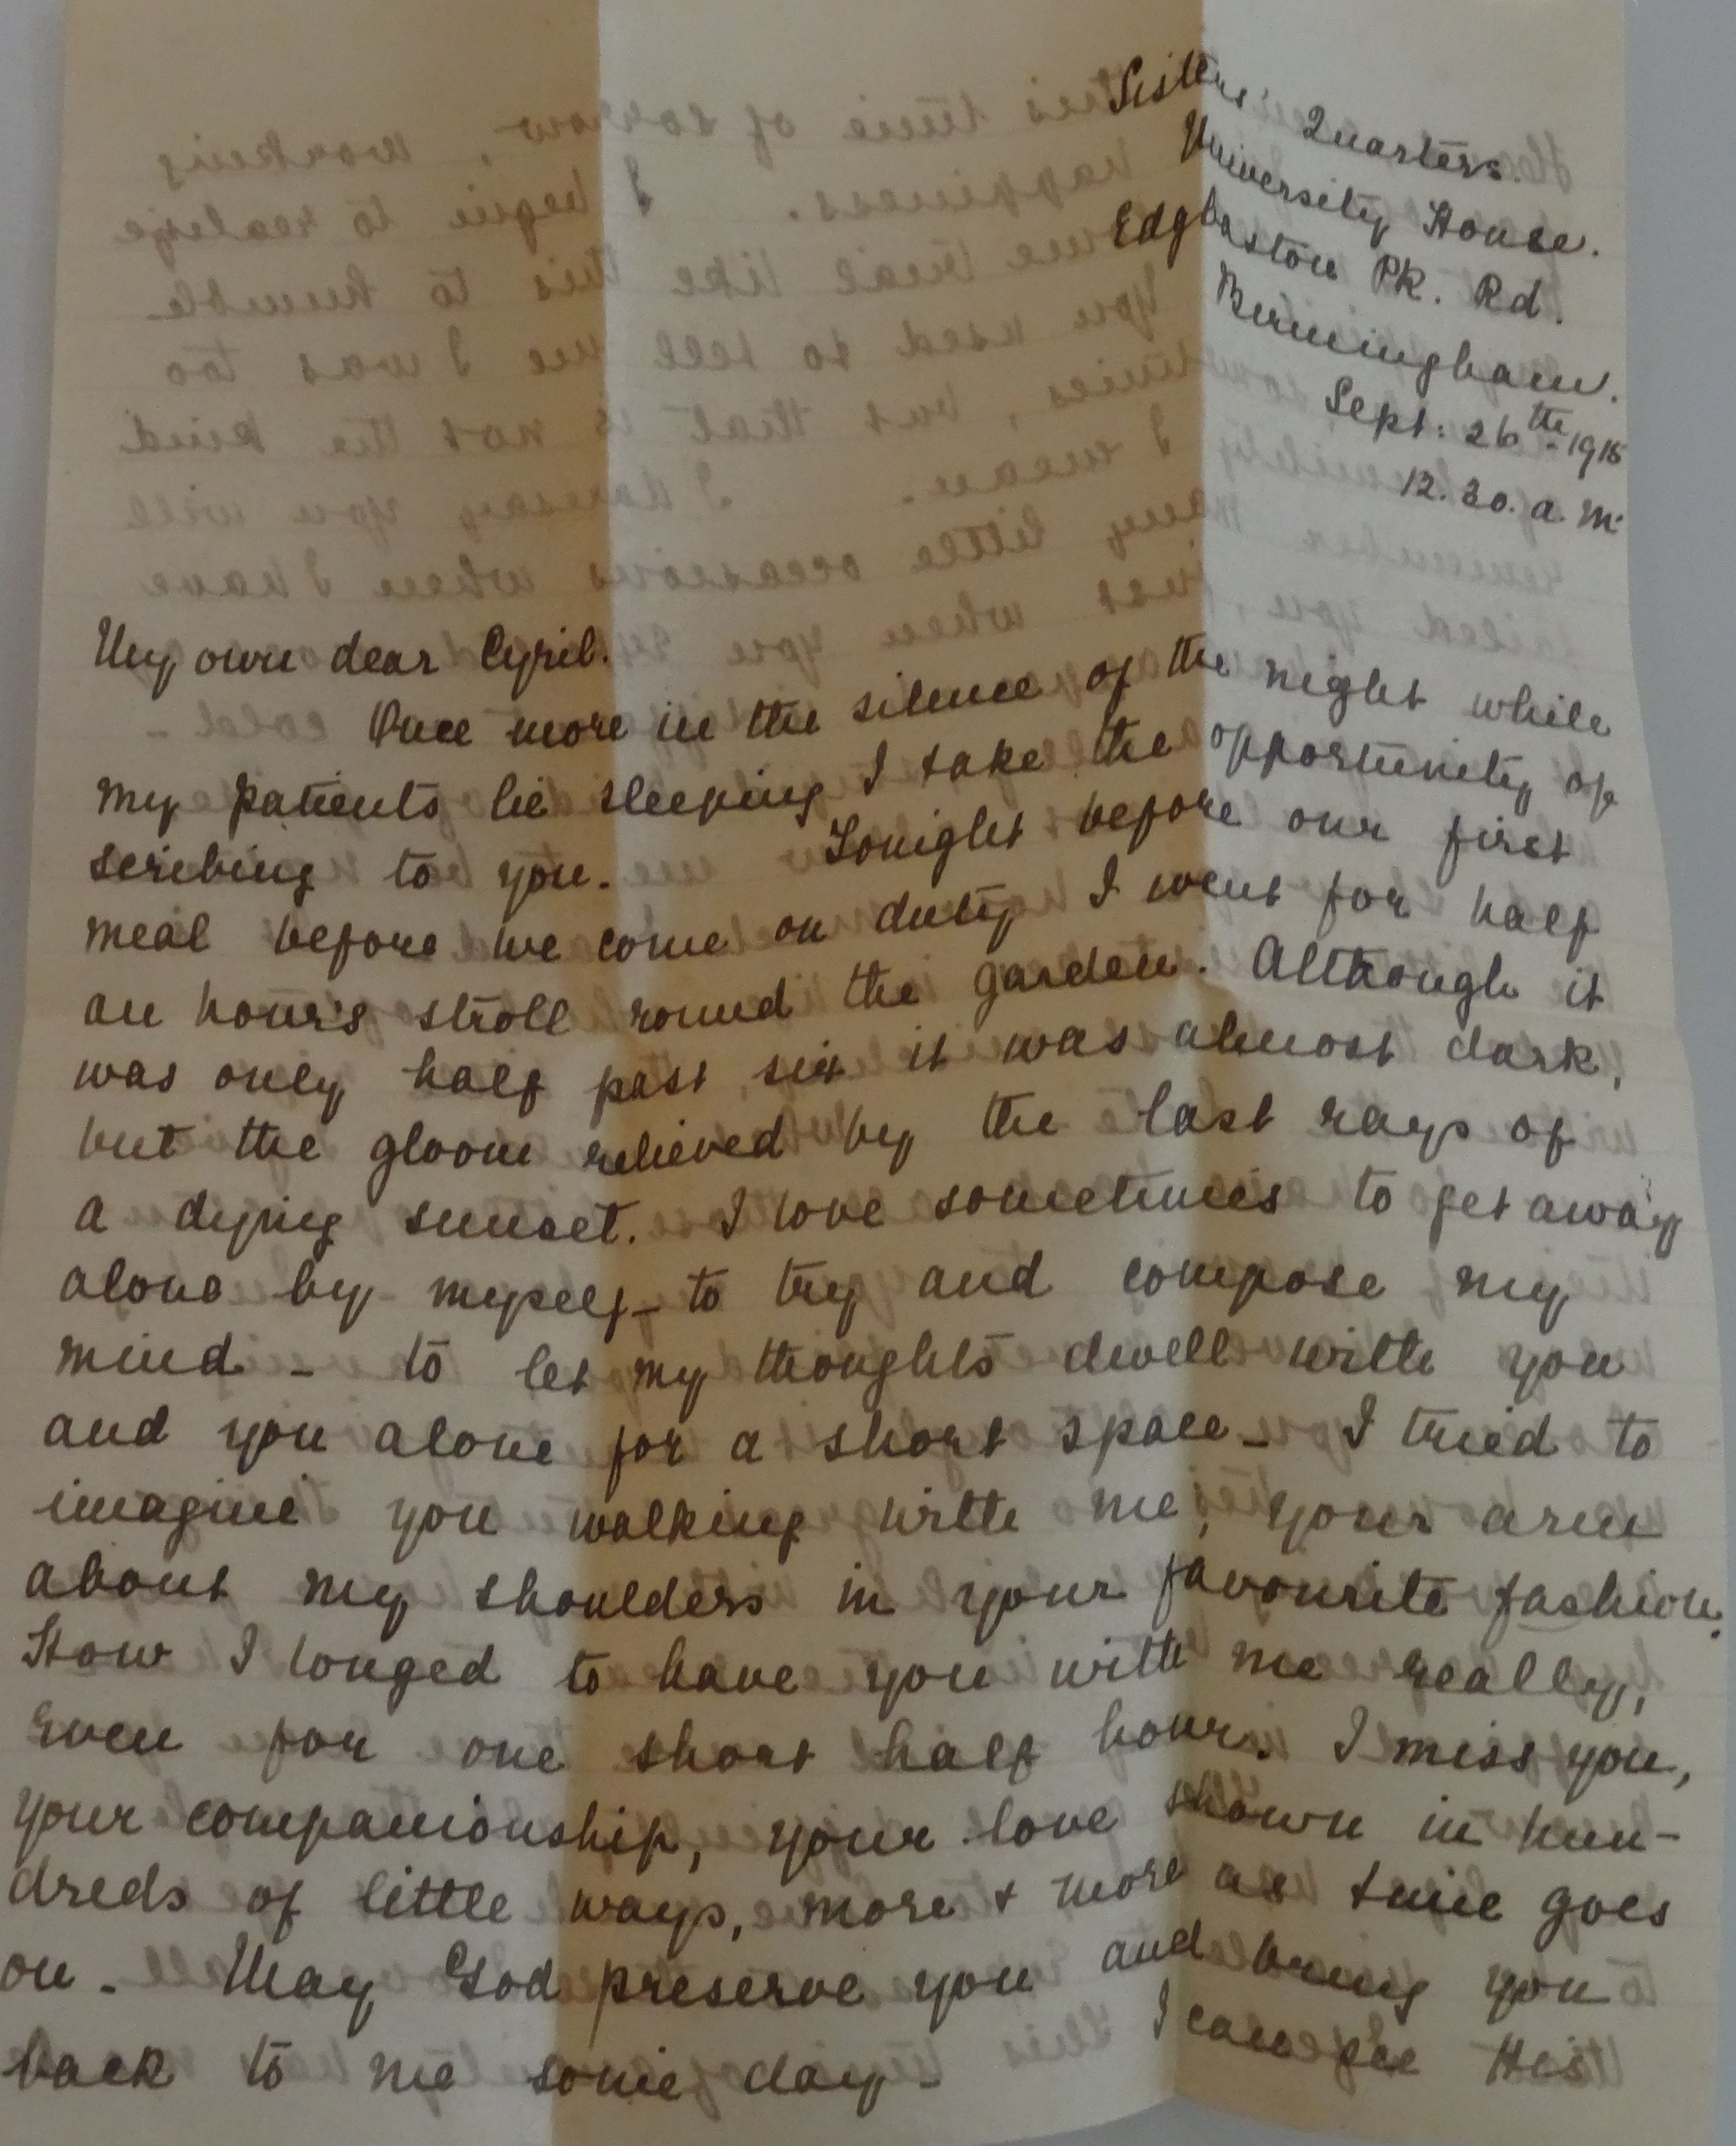 Sisters' Quarters.
University House.
Edgbaston Pk. Rd.
Birmingham.
Sept: 26th 1915
12.30. a. m.
My own dear Cyril.
Once more in the silence of the night while
my patients lie sleeping I take the opportunity of
scribing to you. Tonight before our first
meal before we come on duty I went for half
an hour's stroll round the garden. Although it
was only half past six it was almost dark,
but the gloom relieved by the last rays of
a dying sunset. I love sometimes to get away
alone by myself - to try and compose my
mind - to let my thoughts dwell with you
and you alone for a short space - I tried to
imagine you walking with me, your arm
about my shoulders in your favourite fashion.
How I longed to have you with me really,
even for one short half hour. I miss you,
your companionship, your love shown in hun-
dreds of little ways, more + more as time goes
on. May God preserve you and bring you
back to me some day - I can see His